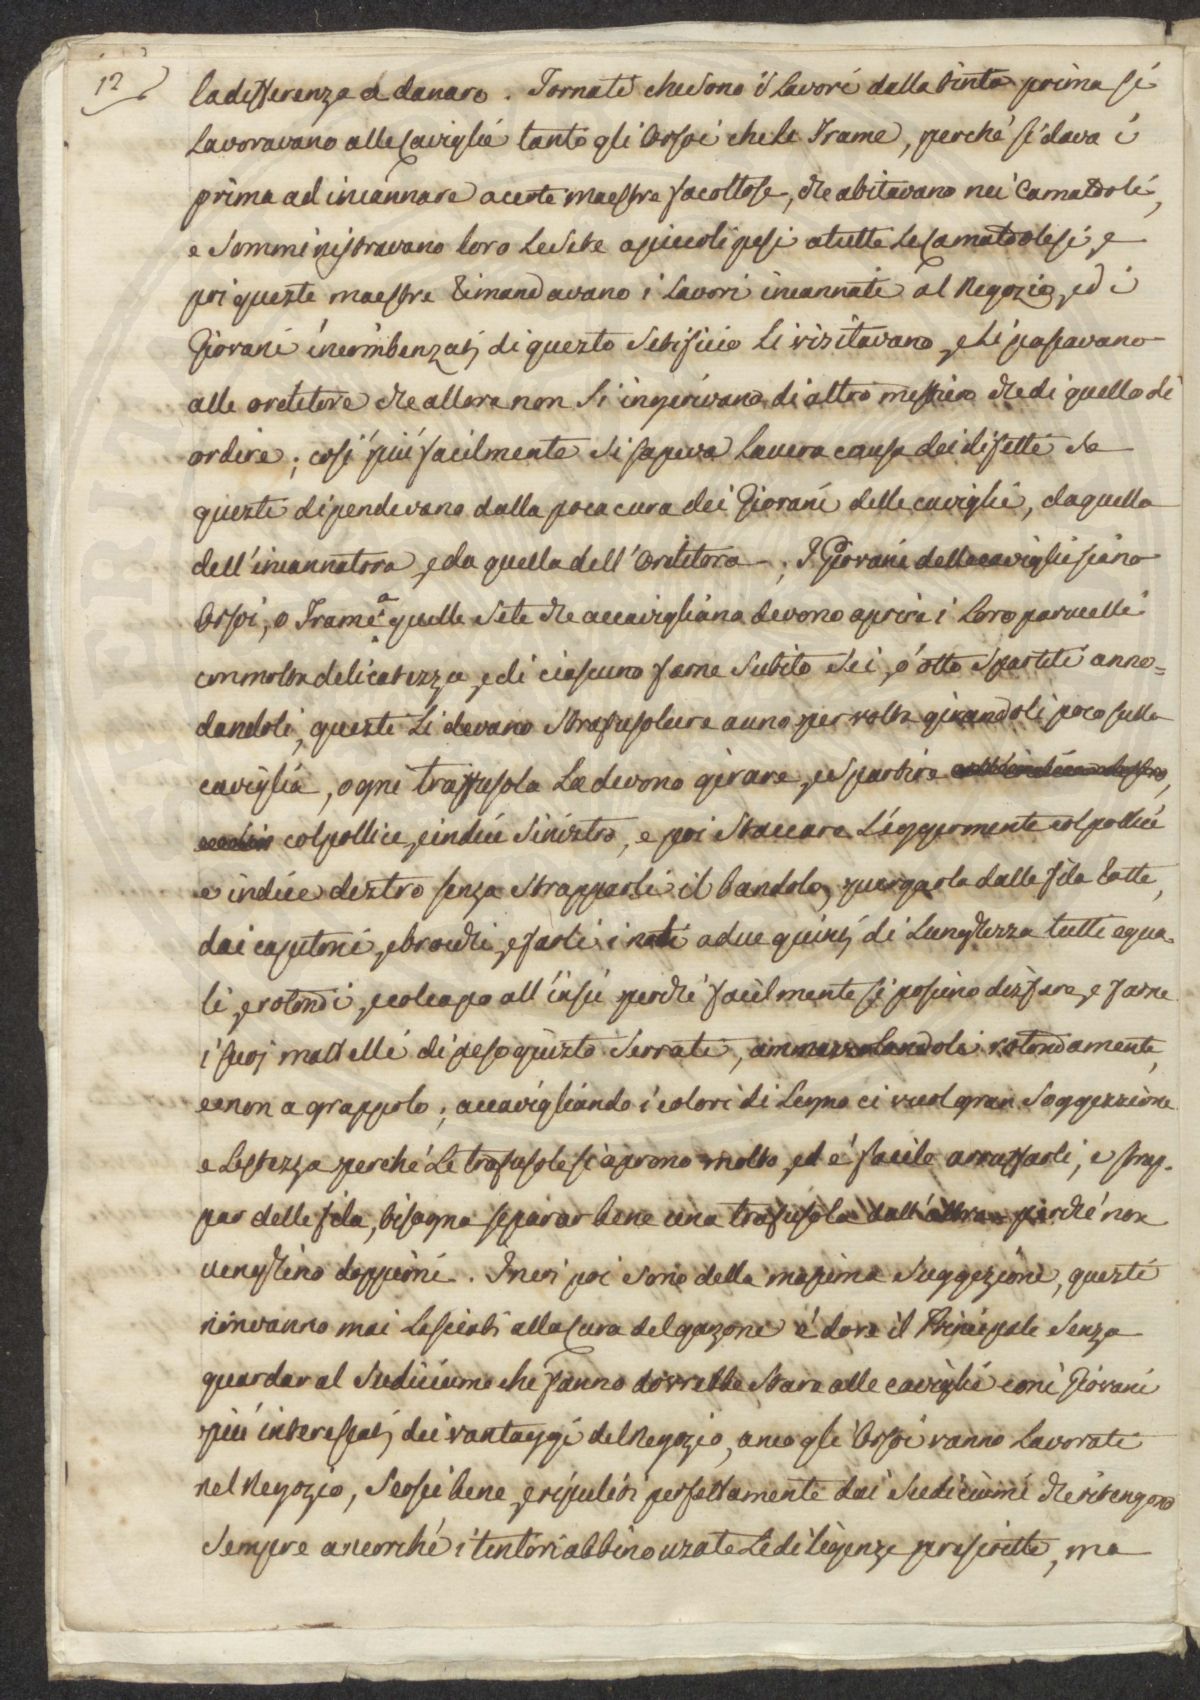 12
la differenza a danaro. Tornati che sono i lavori dalla tinta prima si
lavoravano alle caviglie tanto gli Orsoi che le Trame, perché si dava i
prima ad incannare a certe maestre facoltose, che abitavano nei Camaldoli,
e somministravano loro le sete a piccoli pesi a tutte le Camaldolesi, e
poi queste maestre rimandavano i lavori incannati al Negozio, ed i
Giovani incombenzati di questo Setificio li visitavano, e li passavano
alle orditore che allora non si ingerivano di altro mestiero che di quello di
ordire; così più facilmente si sapeva la vera causa dei difetti se
queste dipendevano dalla poca cura dei Giovani delle caviglie, da quella
dell'incannatora, e da quella dell'Orditora; I Giovani della caviglie siano
Orsoi, o Trame a quelle sete che accavigliano devono aprire i loro parucelli
con molta delicatezza, e di ciascuno farne subito sei, o otto spartiti anno=
dandoli, queste li devano strafusolare a uno per volta girandoli poco sulla
caviglia, ogni traffusola la devono girare, e spartire
col pollice, e indice sinistro, e poi staccare leggermente col pollice
e indice destro senza strapparli il bandolo, purgarla dalle fila rotte,
dai caputoni, e brocchi, e farli i nodi a due quinti di lunghezza tutti egua-
li, e rotondi, e col capo all'insù perché facilmente si possino disfare, e farne
i suoi mattelli di peso giusto serrati, ammazzolandoli rotondamente,
e non a grappolo; accavigliando i colori di Legno ci vuol gran soggezzione
e lestezza perché le trafusole si aprono molto, ed è facile arruffarli, e strap-
par delle fila, bisogna separar bene una trafusola dall'altra perché non
venghino doppioni. I neri poi sono della massima suggezione, questi
non vanno mai lasciati alla cura del garzone è dove il Principale senza
guardar al sudiciume che fanno dovrebbe stare alle caviglie con i Giovani
più interessati dei vantaggi del Negozio, anco gli Orsoi vanno lavorati
nel Negozio, scossi bene, e ripuliti perfettamente dai sudiciumi che ritengono
sempre ancorché i tintori abbino uzate le diligenze prescritte, ma